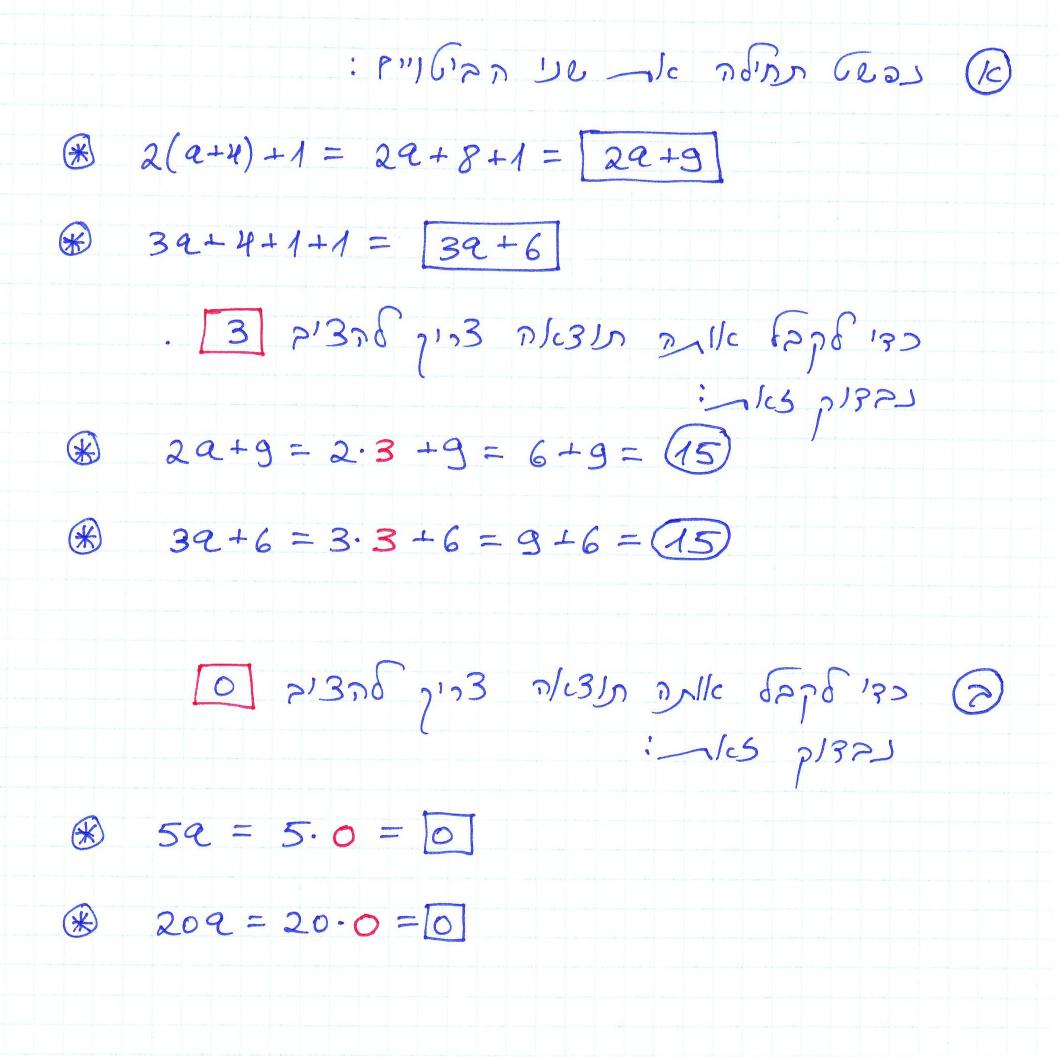 א נפשט תחילה את שני הביטויים :
* 2(a+4)+1 = 2a+8+1 = 2a+9
* 3a+4+1+1 = 3a+6
כדי לקבל אותה תוצאה צריך להציב 3 .
נבדוק זאת :
* 2a+9 = 2·3+9 = 6+9 = 15
* 3a+6 = 3·3+6 = 9+6 = 15
ב כדי לקבל אותה תוצאה צריך להציב 0
נבדוק זאת :
* 5a = 5·0 = 0
* 20a = 20·0 = 0